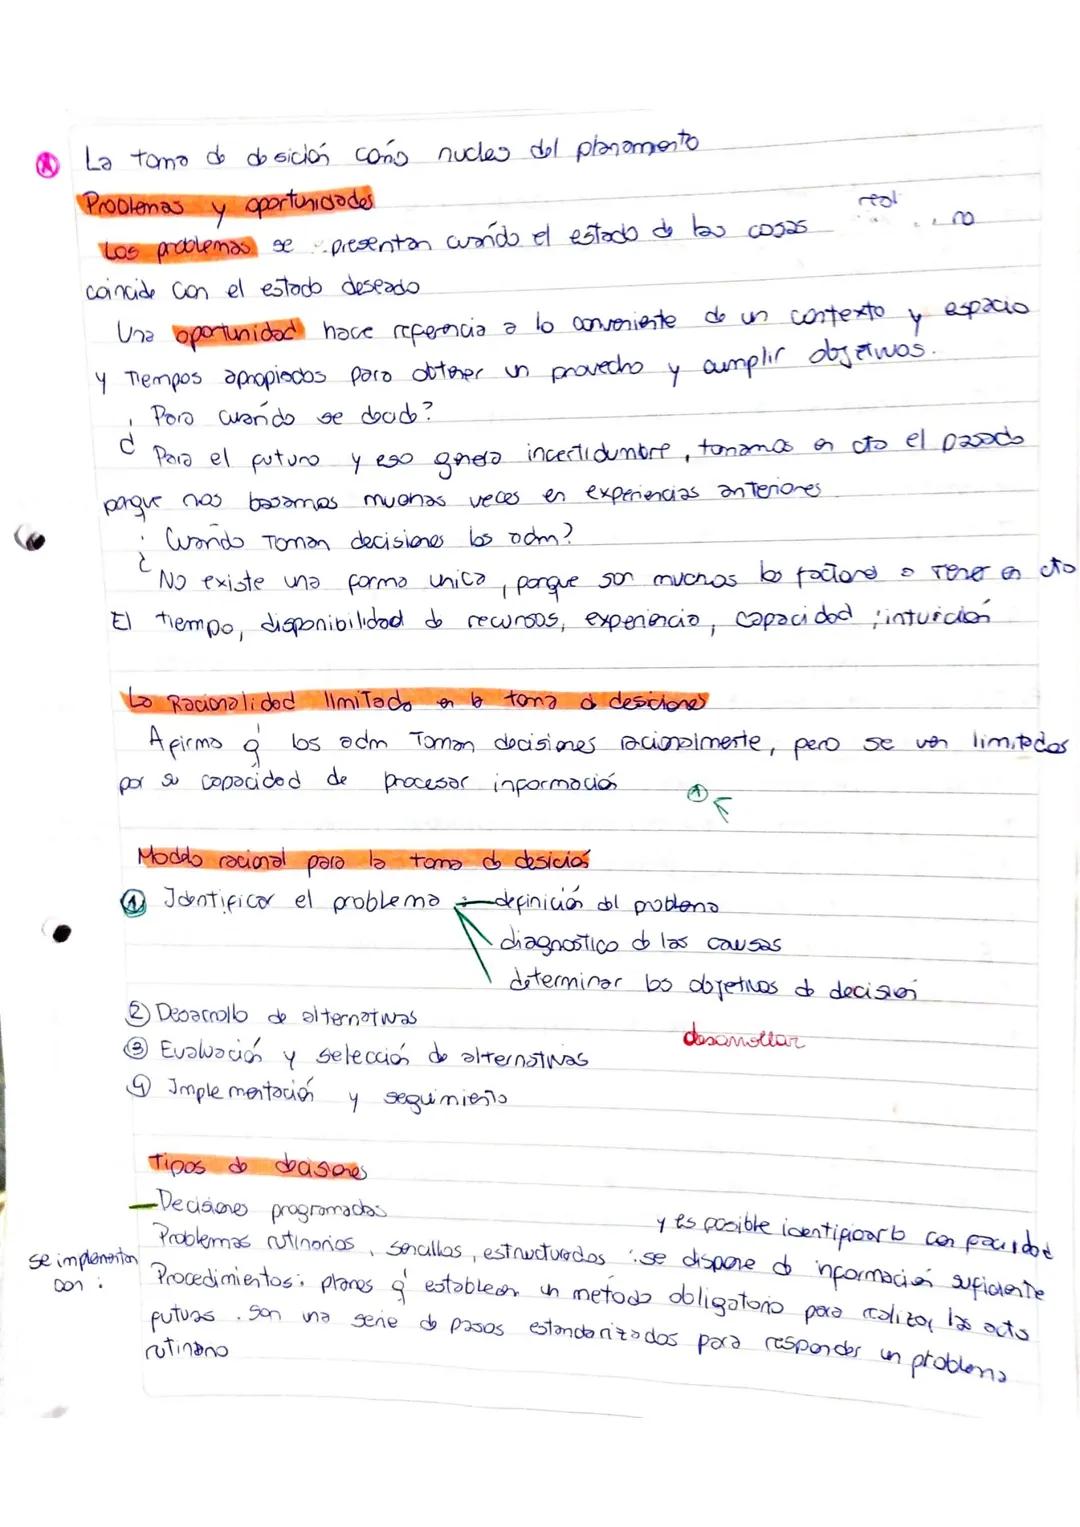 La toma de desición como nucleo del planamento
Problemas y oportunidades
Los problemas se presentan cuando el estado de las cosas real no
coincide con el estado deseado
Una oportunidad hace referencia a lo conveniente de un contexto y espacio
y Tiempos apropiados para obtener un provecho y cumplir objetivos.
¿Para cuando se decide?
Para el futuro y eso genera incertidumbre, tomamos en cta el pasado
porque nos basamos muchas veces en experiencias anteriores
¿Cuando Toman decisiones los adm?
No existe una forma unica, porque son muchos los factores a Tener en cta
El tiempo, disponibilidad de recursos, experiencia, capacidad, intuición
La Racionalidad limitada en la toma de desiciones
Afirma q' los adm Toman decisiones racionalmente, pero se ven limitados
por su capacidad de procesar información
①
Modelo racional para la toma de desición
① Identificar el problema: definición del problema
diagnostico de las causas
determinar los objetivos de decisión
② Desarrollo de alternativas
desarrollar
③ Evaluación y selección de alternativas
④ Implementación y seguimiento
Tipos de decisiones
- Decisiones programadas
y es posible identificarlo con facilidad
Problemas rutinarios, sencillos, estructurados: se dispone de información suficiente
se implementan con:
Procedimientos: planes q' establecen un metodo obligatorio para realizar las acts
futuras. Son una serie de pasos estandarizados para responder un problema
rutinario